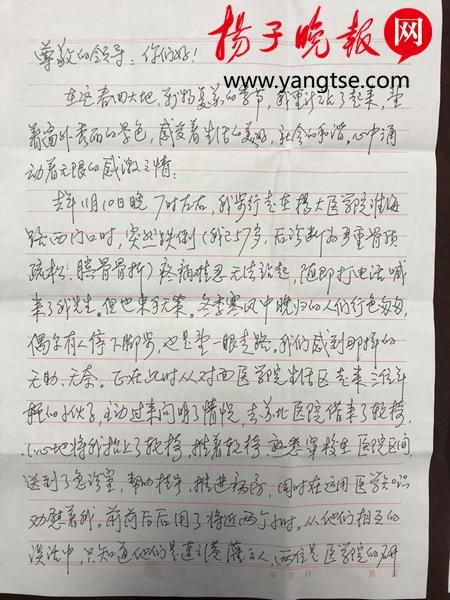 扬子晚报网
www.yangtse.com
尊敬的领导：你们好！
在这春回大地，万物复苏的季节，我重新站了起来，望
着窗外秀丽的景色，感受着生活的美好，社会的和谐，心中涌
动着无限的感激之情：
去年11月10日晚7时左右，我步行走在扬大医学院淮海
路西门口时，突然跌倒（我已57岁，后诊断为严重骨质
疏松、髌骨骨折）疼痛难忍无法站起，随即打电话喊
来了我先生。但也束手无策。冬季寒风中晚归的人们行色匆匆，
偶尔有人停下脚步，也是望一眼走路。我们感到那样的
无助、无奈。正在此时从对面医学院生活区走来三位年
轻的小伙子，主动过来问明了情况，去苏北医院借来了轮椅，
小心地将我抬上了轮椅，推着轮椅，熟悉穿梭在医院区间，
送到了急诊室，帮助挂号、推进病房，同时在运用医学知识
劝慰着我，前前后后用了将近两个小时，从他们相互的
谈话中，只知道他们是连云港 人，两位是医学院的研
年 月 日 第 页